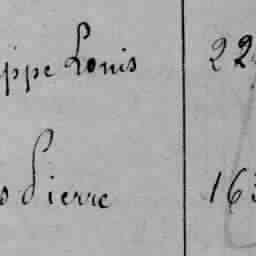 ippe Louis 22
s Pierre 163